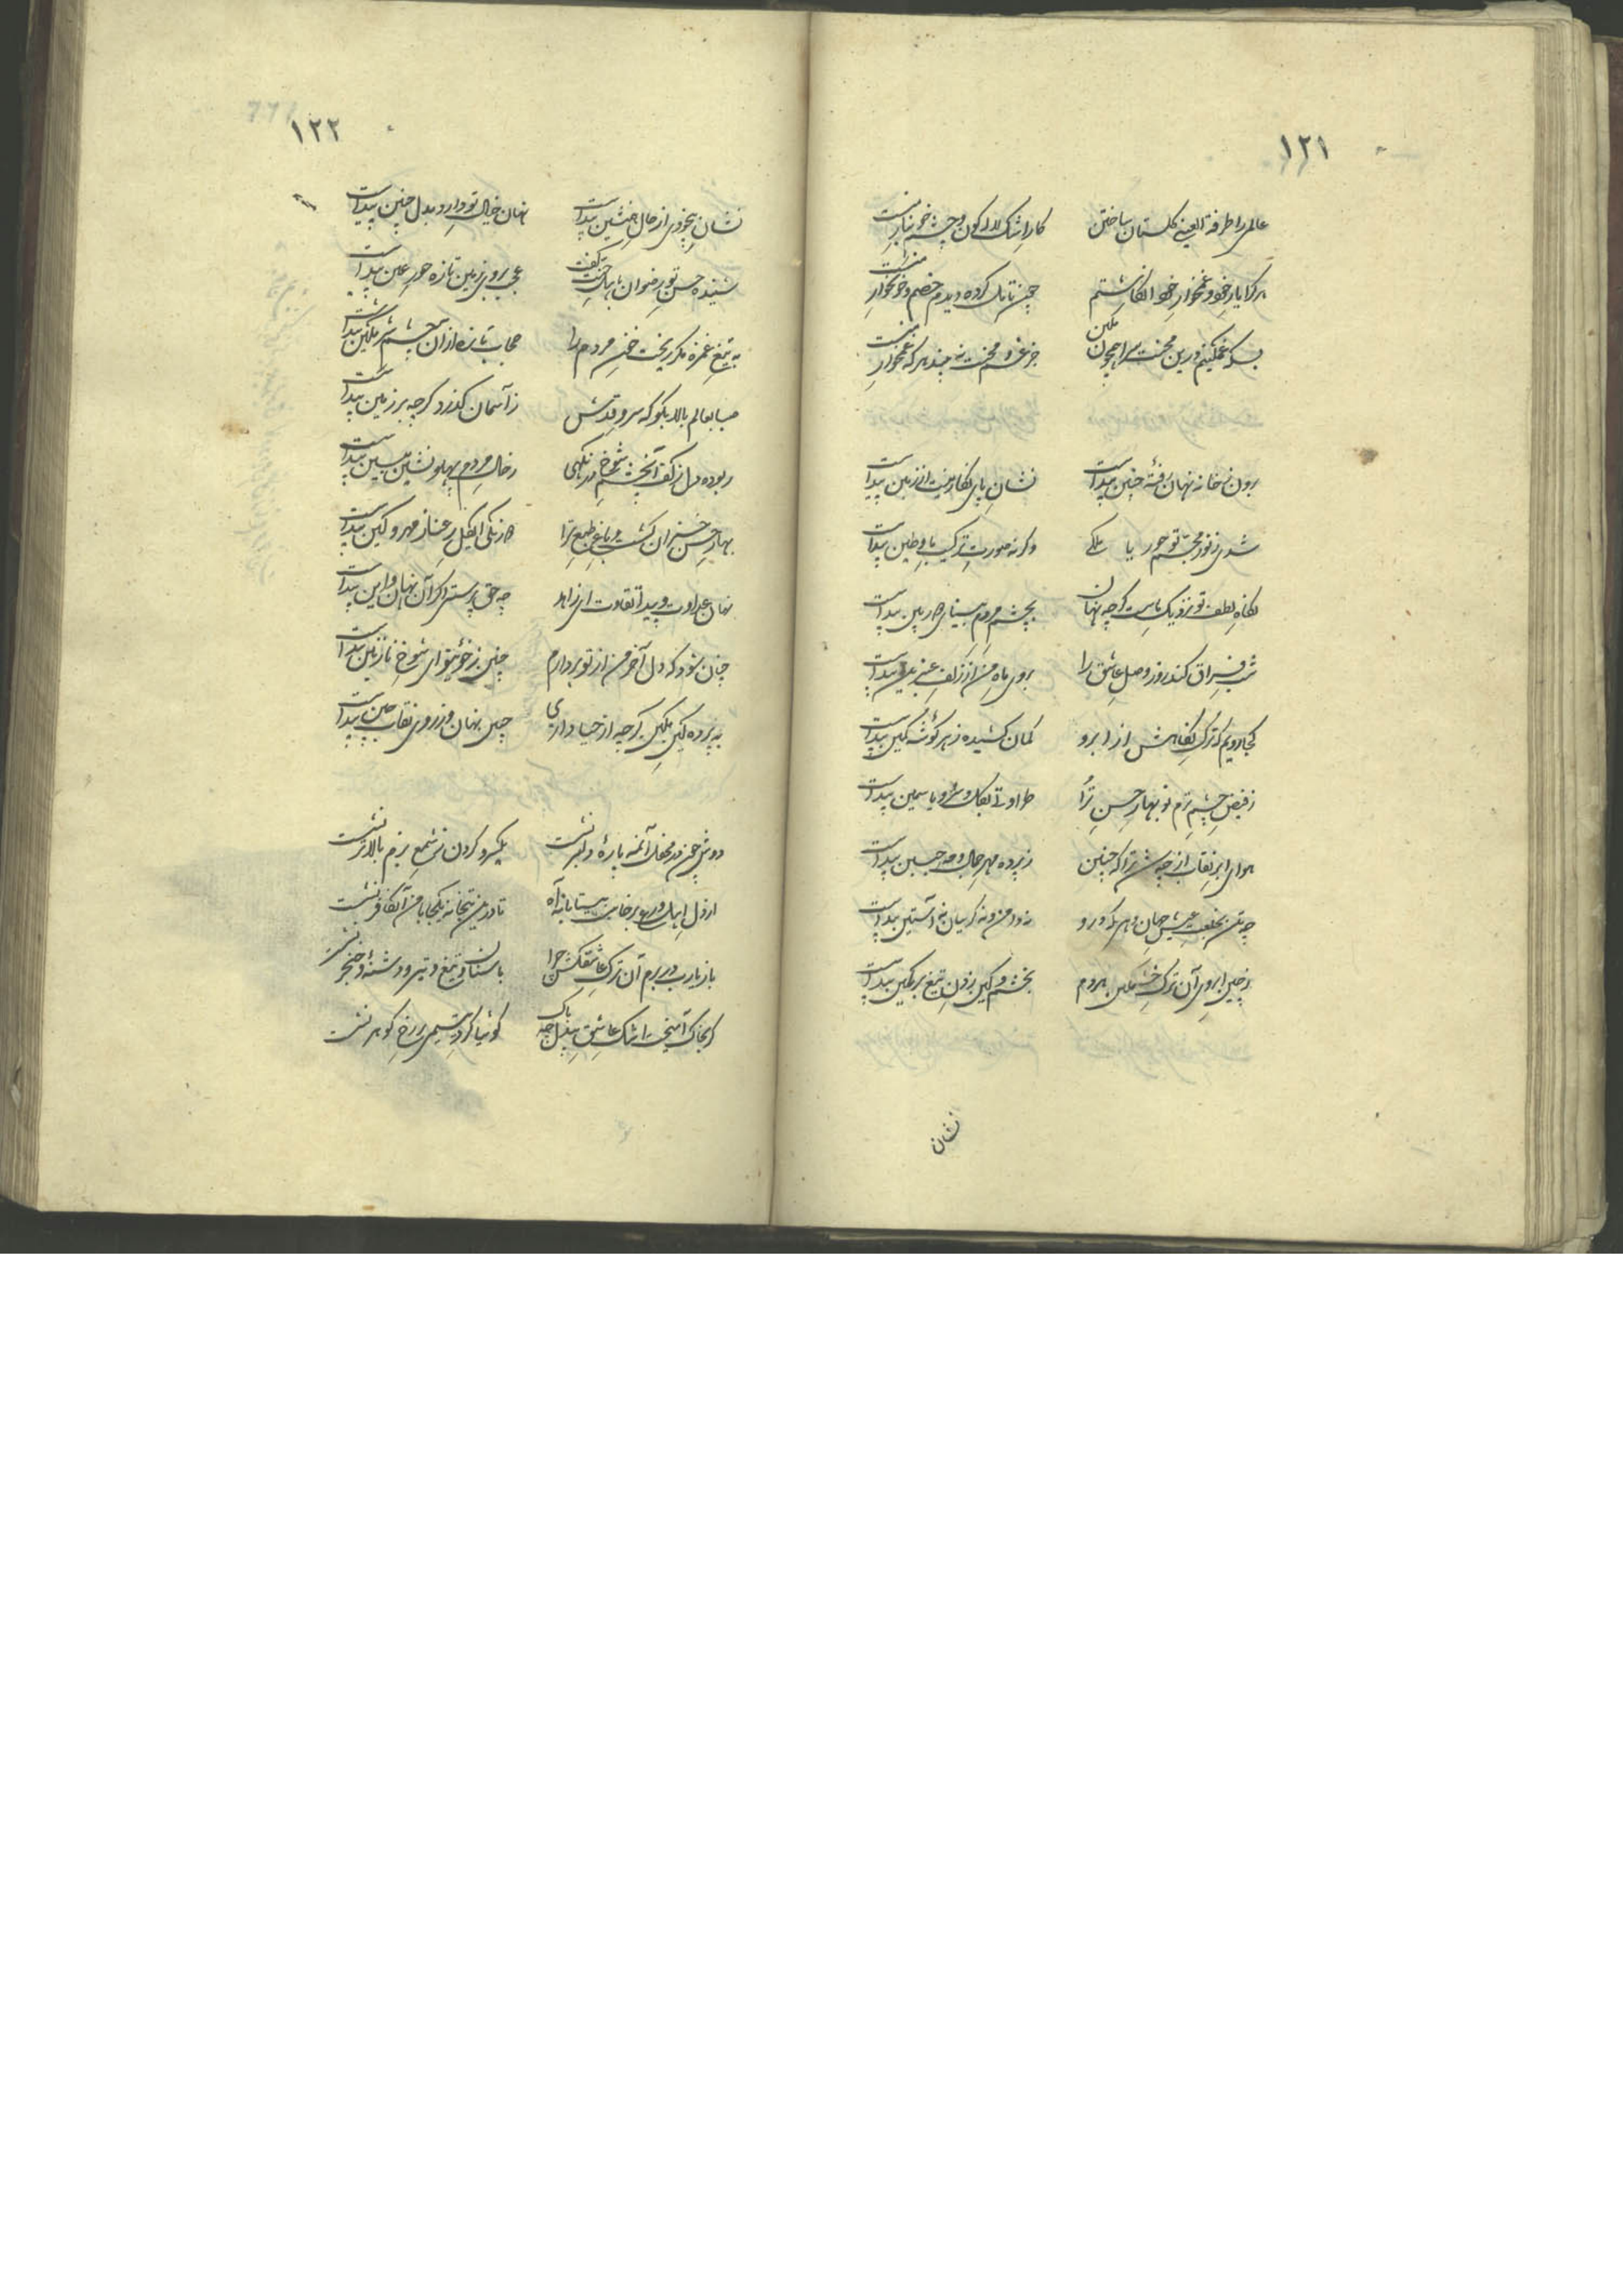 ۱۲۱
عالمی را طرفة العینی گلستان ساختن کار اشک لاله گون و چشم خونبار منست
هر کرا یار خود و غمخوار خود انگاشتم چون تامل کرده دیدم خصم و خونخوار منست
بسکه غمگینم درین محنت سرا همچون مکین جز غم و محنت نه بیند هر که غمخوار منست
برون ز خانه نهان رفتهٔ چنین پیداست نشان پای نگارینت از زمین پیداست
شدی ز نور مجسم تو حور یا ملکی وگرنه صورت ترکیب ما و طین پیداست
نگاه لطف تو نزدیک ماست گرچه نهان بچشم مردم بینای دوربین پیداست
شب فراق کند روز وصل عاشق را بروی ماه من از زلف عنبرین پیداست
کجا رویم که ترک نگاهش از ابرو کمان کشیده ز هر گوشه کمین پیداست
ز فیض چشم ترم نوبهار حسن ترا طراوت گل و سرو یاسمین پیداست
هوای ابر نقاب از چه شد ترا که چنین ز پرده مهر جمال و مه جبین پیداست
چه تن بخلعت عیش جهان دهم که درو نه دامن و نه گریبان نه آستین پیداست
ز چین ابروی آن ترک خشمگین هردم بخشم و کین زدن تیغ بر مکین پیداست
نشان
۱۲۲
نشان بیخودی از حال همنشین پیداست نهان خیال تو دارد بدل چنین پیداست
شنیده حسن تو رضوان باهل جنت گفت عجب بروی زمین تازه حور عین پیداست
به تیغ غمزه مگر ریخت خون مردم را حجاب تازه ازان چشم شرمگین پیداست
صبا بعالم بالا بگو که سرو قدش ز آسمان گذرد گرچه بر زمین پیداست
ربوده دل ز کف آنچشم شوخ در نگهی ز خال مردم پهلو نشین همین پیداست
بهار حسن خزان گشت و باغ طبع ترا دو رنگی ای گل رعنا ز مهر و کین پیداست
نهان عداوت و پیدا تفاوت ای زاهد چه حق پرستی اگر آن نهان و این پیداست
چنان شود که دل آخر من از تو بردارم چنین ز خوی تو ای شوخ نازنین پیداست
به پرده لیکن مکین گرچه از حیا داری چین نهان و ز روی نقاب چین پیداست
دوش چون در محفل آئمه پارهٔ دلبر نشست یکسر و گردن ز شمع بزم بالاتر نشست
از دل اهل ورع برخاست بیتابانه آه تا درین بتخانه یکجا با من آن کافر نشست
باز یارب در برم آن ترک عاشق کش چرا با سنان و تیغ و تیر و دشنه و خنجر نشست
گر بخاک آمیخت اشک عاشق بیدل چه باک گوئیا گرد یتیمی بر رخ گوهر نشست